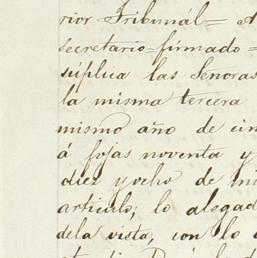 rior Tribunál= A
secretario=firmado=
súplica las Senoras
la misma tercera
mismo año de cin
á fojas noventa y
diez y ocho de mi
articulo; lo alegad
dela vista, con lo